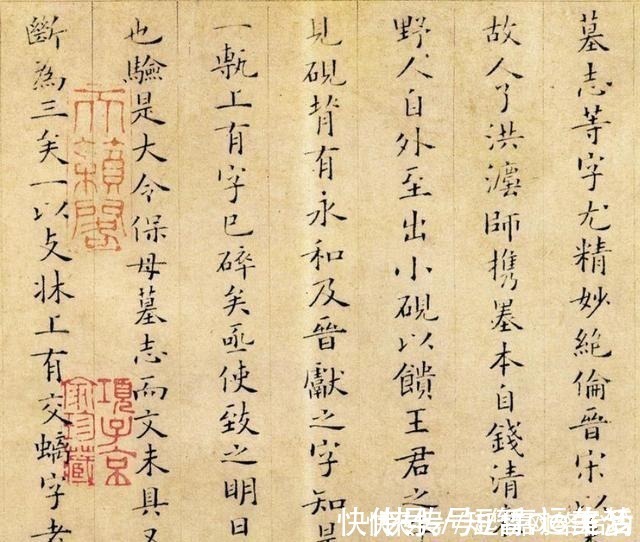 墓志等字尤精妙絶倫晉宋以
故人了洪灋師携墨本自錢清
野人自外至出小硯以饋王君之
見硯背有永和及晉獻之字知是
一甎上有字已碎矣亟使致之明日
也驗是大令保母墓志而文未具又
斷為三矣一以支牀上有交螭字者
天籟閣
項子京家珍藏